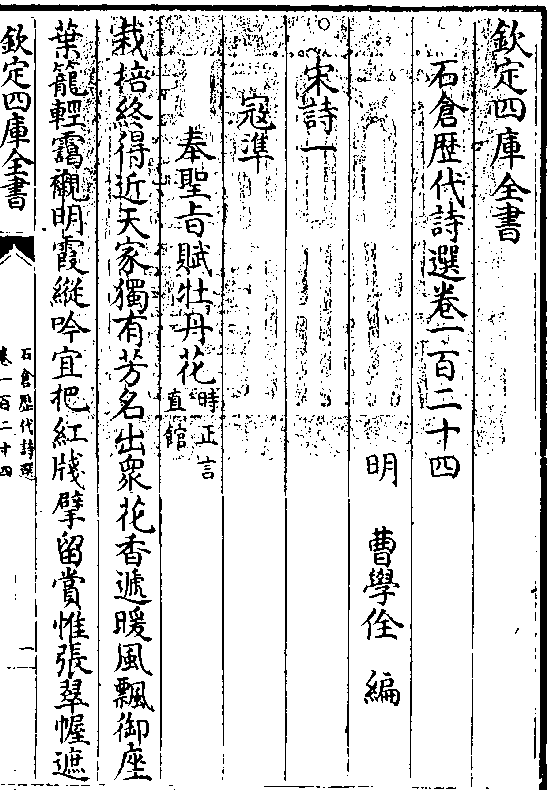 欽定四庫全書
石倉歴代詩選卷一百二十四
明 曹學佺 編
宋詩一
冦準
奉聖旨賦牡丹花時正言直館
栽培終得近天家獨有芳名出衆花香遞暖風飄御座
葉籠輕靄襯明霞縱吟宜把紅牋擘留賞惟張翠幄遮
欽定四庫全書
石倉歴代詩選
卷一百二十四
一